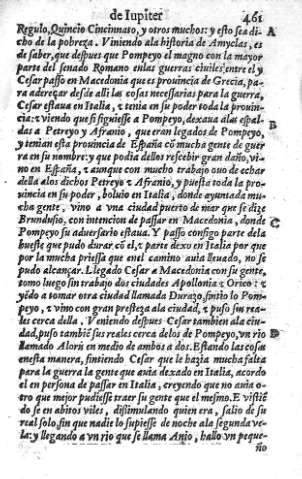 de Iupiter 461
Regulo, Quincio Cincinnato, y otros muchos: y esto sea di- A
cho de la pobreza. Viniendo ala historia de Amyclas, es
de saber, que despues que Pompeyo el magno con la mayor
parte del senado Romano enlas guerras ciuiles entre el y
Cesar passo en Macedonia que es prouincia de Grecia, pa-
ra adereçar desde alli las cosas necessarias para la guerra,
Cesar estaua en Italia, & tenia en su poder toda la prouin-
cia: & viendo que si siguiesse a Pompeyo, dexaua alas espal-
das a Petreyo y Afranio, que eran legados de Pompeyo, B
y tenian esta prouincia de España cō mucha gente de guer
ra en su nombre: y que podia dellos rescebir gran daño, vi-
no en España, & aunque con mucho trabajo vuo de echar
della alos dichos Petreyo & Afranio, y puesta toda la pro-
uincia en su poder, boluio en Italia, donde ayuntada mu-
cha gente, vino a vna ciudad puerto de mar que se dize
Brundusio, con intencion de passar en Macedonia, donde C
Pompeyo su aduersario estaua. Y passo consigo parte dela
hueste que pudo durar cō el, & parte dexo en Italia por que
por la mucha priessa que enel camino auia lleuado, no se
pudo alcançar. Llegado Cesar a Macedonia con su gente,
tomo luego sin trabajo dos ciudades Apollonia & Orico: &
yēdo a tomar otra ciudad llamada Durazo, sintio lo Pom-
peyo, & vino con gran presteza ala ciudad, & puso sus rea-
les cerca della. Veniendo despues Cesar tambien ala ciu-
dad, puso tambiē sus reales cerca delos de Pompeyo, vn rio D
llamado Alorū en medio de ambos a dos. Estando las cosas
enesta manera, sintiendo Cesar que le hazia mucha falta
para la guerra la gente que auia dexado en Italia, acordo
el en persona de passar en Italia, creyendo que no auia o-
tro que mejor pudiesse traer su gente que el mesmo. E vistiē
do se en abitos viles, dissimulando quien era, salio de su
real solo, sin que nadie lo supiesse de noche ala segunda ve-
la: y llegando a vn rio que se llama Anio, hallo vn peque-
ño